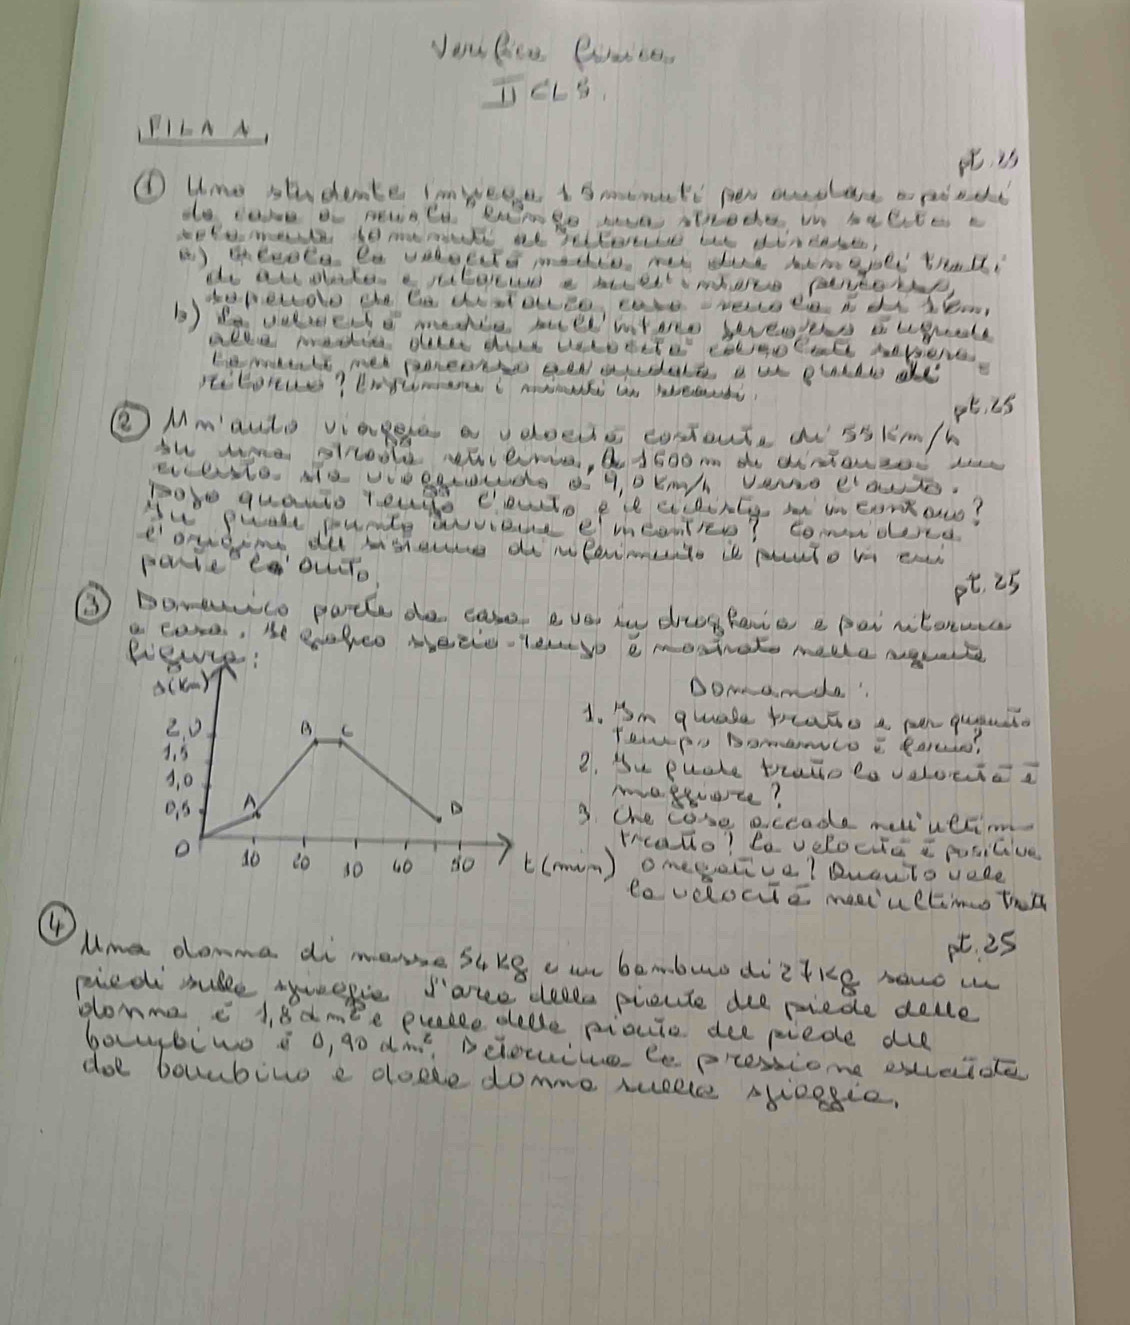 Verifica Fisica
II CLS.
FILA A
pt. 25
① Uno studente impiega 15 minuti per andare a piedi
da casa a scuola lungo una strada in salita e
solamente 10 minuti al ritorno in discesa.
a) Calcola la velocità media nei due semplici tratti
di andata e ritorno e sull'intero percorso,
sapendo che la distanza casa-scuola è di 1 km.
b) La velocità media sull'intero percorso è uguale
alla media delle due velocità calcolate separa-
tamente nel percorso all'andata e in quello del
ritorno? Esprimere i minuti in secondi.
pt. 25
② Un'auto viaggia a velocità costante di 55 km/h
su una strada rettilinea, A 1600 m di distanza un
ciclista sta viaggiando a 9,0 km/h verso l'auto.
Dopo quanto tempo l'auto e il ciclista si incontrano?
In quale punto avviene l'incontro? Considera
l'origine del sistema di riferimento il punto in cui
parte l'auto.
pt. 25
③ Domenico parte da casa e va in drogheria e poi ritorna
a casa. Il grafico spazio-tempo è mostrato nella seguente
figura:
s(km)
2,0
1,5
1,0
0,5
0
A
B
C
D
10
20
30
40
50
t(min)
Domande:
1. In quale tratto e per quanto
tempo Domenico è fermo?
2. In quale tratto la velocità è
maggiore?
3. Che cosa accade nell'ultimo
tratto? La velocità è positiva
o negativa? Quanto vale
la velocità nell'ultimo tratto
pt. 25
④ Una donna di massa 54 Kg e un bambino di 27 Kg sono in
piedi sulla spiaggia l'area della pianta del piede della
donna è 1,8 dm² e quella della pianta del piede del
bambino è 0,90 dm². Determina la pressione esercitata
dal bambino e dalla donna sulla spiaggia.